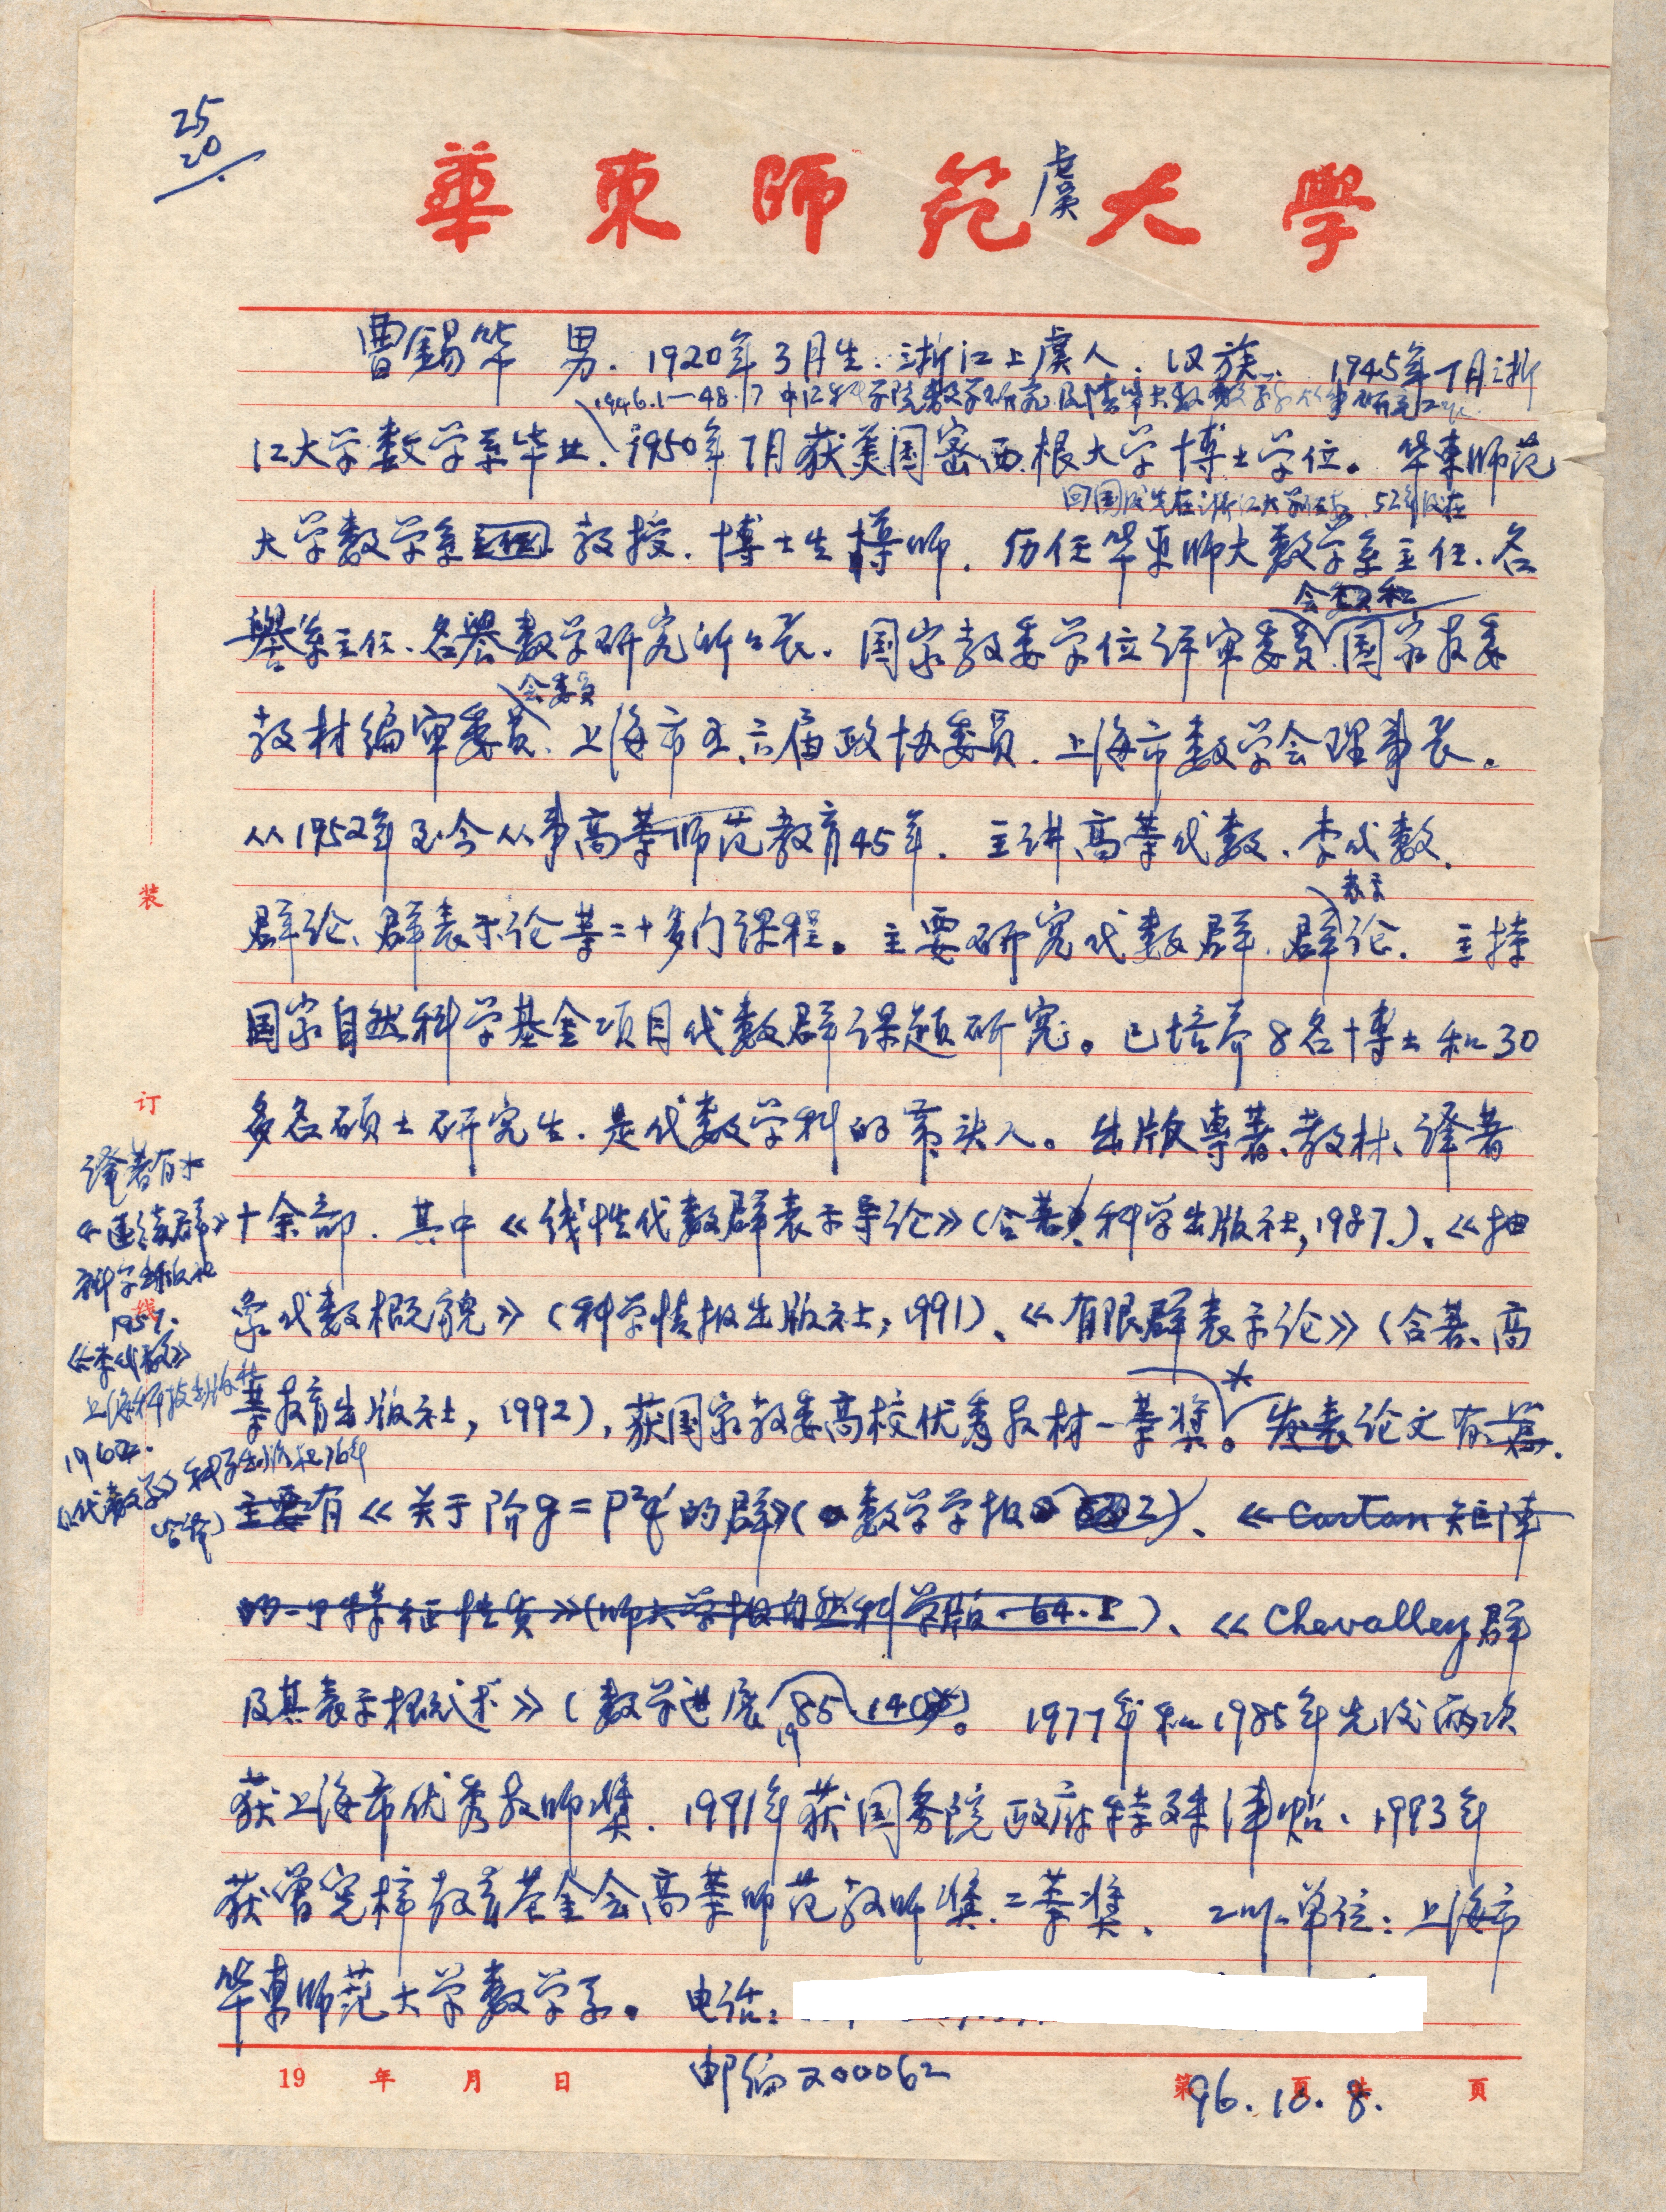 25
20
華東師范大學
虞
曹锡华 男. 1920年3月生. 浙江上虞人. 汉族. 1945年7月浙
1946.1—48.7 中江科学院数学研究 及清华大数数学系从事研究工作
江大学数学系毕业. 1950年7月获美国密西根大学博士学位。华东师范
回国后先在浙江大学任教, 52年后在
大学数学系 教授. 博士生导师. 历任华东师大数学系主任. 名
会委员和
誉系主任. 名誉数学研究所所长. 国家教委学位评审委员 国家教委
会委员
教材编审委员、上海市五、六届政协委员. 上海市数学会理事长.
从1952年至今从事高等师范教育45年. 主讲高等代数、李代数.
表示
群论、群表示论等二十多门课程。主要研究代数群. 群论. 主持
国家自然科学基金项目代数群课题研究。已培养8名博士和30
多名硕士研究生. 是代数学科的带头人。出版专著、教材、译著
十余部. 其中《线性代数群表示导论》(合著, 科学出版社, 1987.)、《抽
象代数概貌》(科学情报出版社, 1991)、《有限群表示论》(合著、高
等教育出版社, 1992), 获国家教委高校优秀教材一等奖。*发表论文有
主要有《关于阶g=p²q²的群》(数学学报 2)、《Cartan矩阵
的一个特征性质》(师大学报自然科学版. 64. I)、《Chevalley群
及其表示概述》(数学进展 1985.14)。1977年和1985年先后两次
获上海市优秀教师奖. 1991年获国务院政府特殊津贴、1993年
获曾宪梓教育基金会高等师范教师奖. 二等奖. 工作单位: 上海市
华东师范大学数学系。电话:
邮编200062
96.10.8.
译著有
《连续群》
科学出版社
195
《李代数》
上海科技出版社
196
《代数学》科学出版社76年
(合译)
装
订
线
19 年 月 日
第 页 共 页